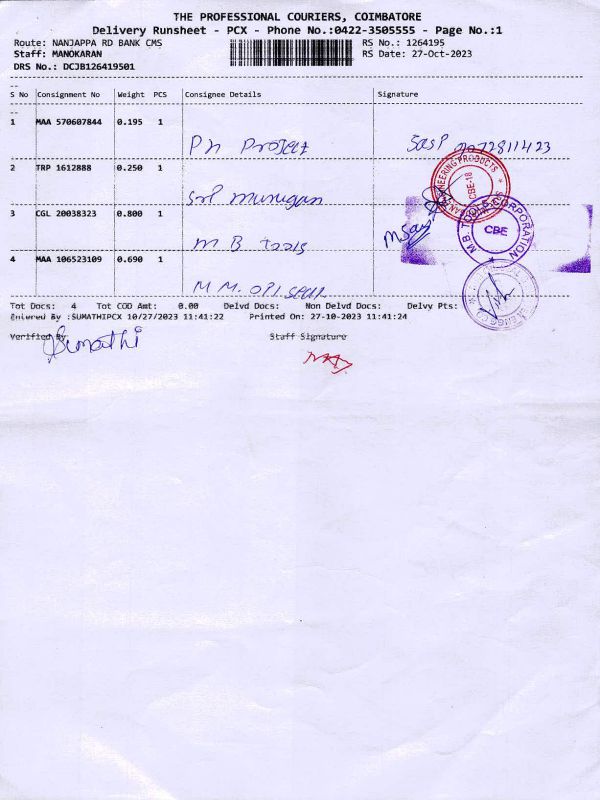 THE PROFESSIONAL COURIERS, COIMBATORE
Delivery Runsheet - PCX - Phone No.:0422-3505555 - Page No.:1
Route: NANJAPPA RD BANK CMS RS No.: 1264195
Staff: MANOKARAN RS Date: 27-Oct-2023
DRS No.: DCJB126419501
S No Consignment No Weight PCS Consignee Details Signature
1 MAA 570607844 0.195 1
Pn Project
2 TRP 1612888 0.250 1
Sri Murugan
ENGINEERING PRODUCTS
CBE-18
3 CGL 20038323 0.800 1
M B Tools
M.B. TOOLS CORPORATION
CBE
4 MAA 106523109 0.690 1
M M.
Tot Docs: 4 Tot COD Amt: 0.00 Delvd Docs: Non Delvd Docs: Delvy Pts:
Entered By :SUMATHIPCX 10/27/2023 11:41:22 Printed On: 27-10-2023 11:41:24
Verified By Staff Signature
Sumathi